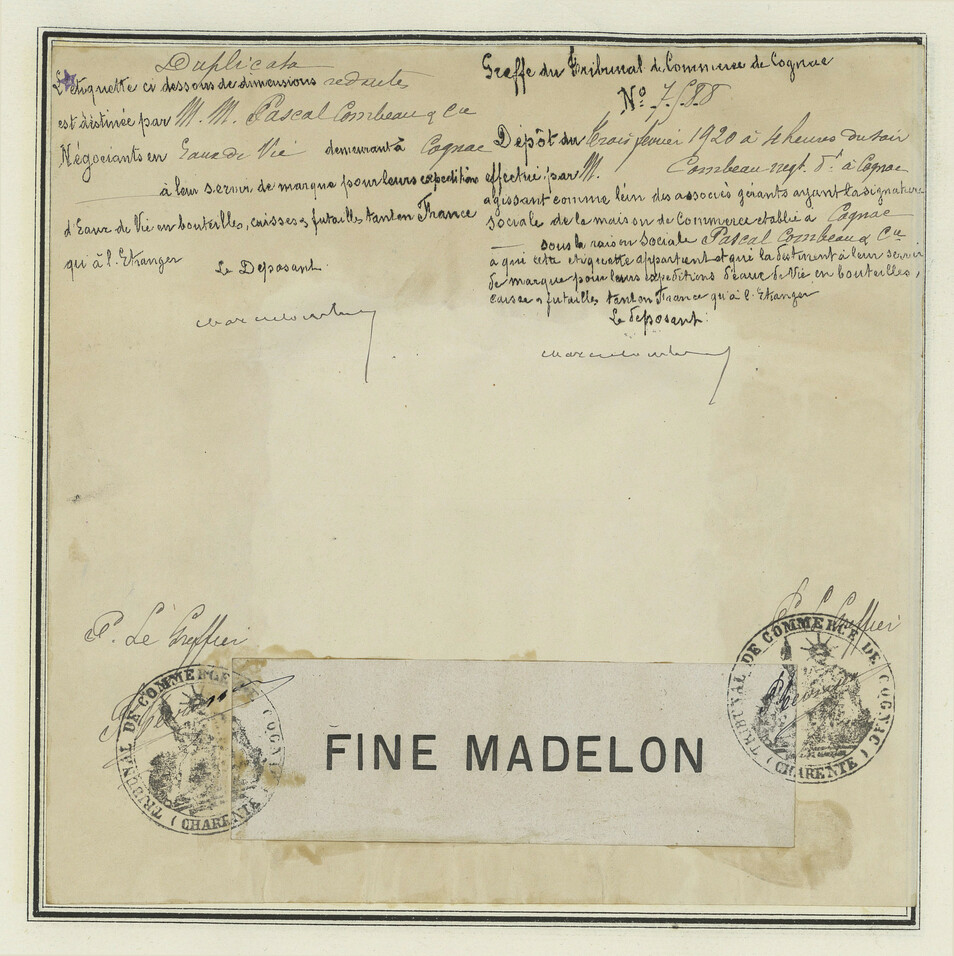 Duplicata
L'étiquette ci dessous de dimensions réduites
est destinée par M. M. Pascal Combeau & Cie
Négociants en Eaux de Vie demeurant à Cognac
à leur servir de marque pour leurs expéditions
d'Eaux de Vie en bouteilles, caisses & futailles tant en France
qu'à l'Etranger
Le Déposant
Greffe du Tribunal de Commerce de Cognac
No
Dépôt du trois février 1920 à 4 heures du soir
effectué par M. Combeau negt. dt à Cognac
agissant comme l'un des associés gérants ayant la signature
sociale de la maison de Commerce établie à Cognac
sous la raison sociale Pascal Combeau & Cie
à qui cette étiquette appartient et qui la destinent à leur servir
de marque pour leurs expéditions d'eaux de Vie en bouteilles,
caisses & futailles tant en France qu'à l'Etranger
Le déposant:
P. Le Greffier
P. Le Greffier
TRIBUNAL DE COMMERCE DE COGNAC (CHARENTE)
FINE MADELON
TRIBUNAL DE COMMERCE DE COGNAC (CHARENTE)